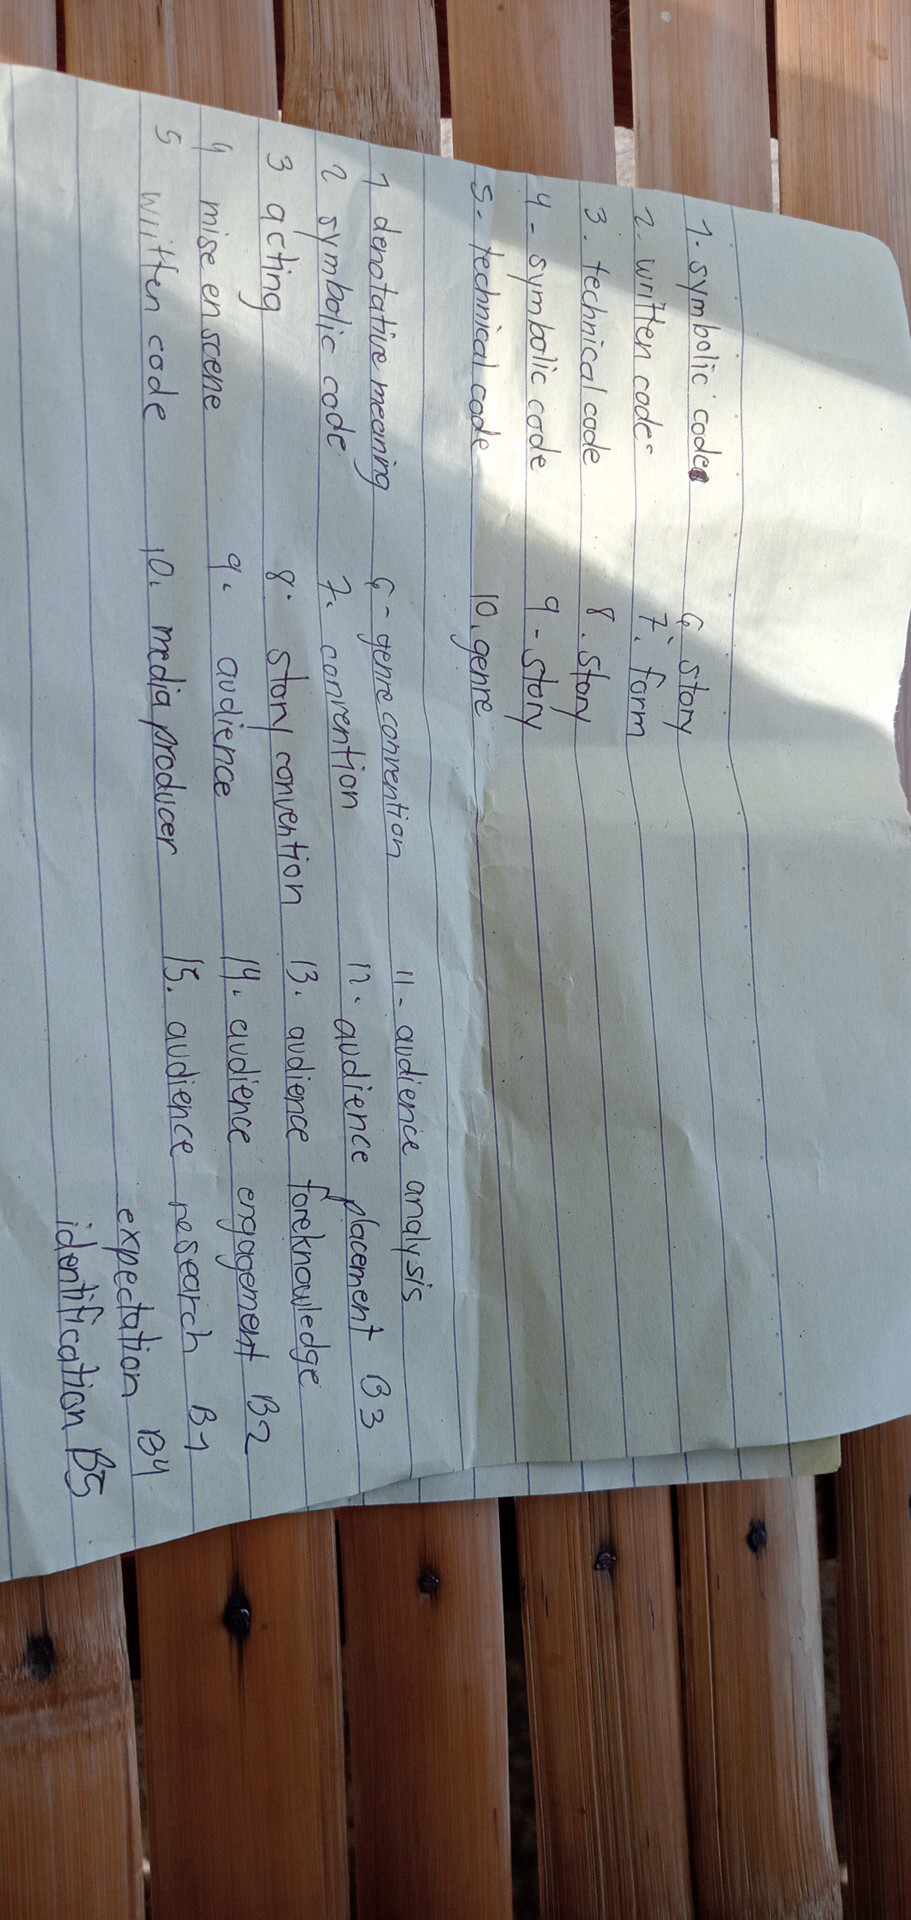 1. symbolic code
2. written code
3. technical code
4 - symbolic code
5 - technical code
6 story
7. form
8. story
9 - story
10. genre
1 denotative meaning
2 symbolic code
3 acting
4 mise en scene
5 written code
6 - genre convention
7. convention
8. story convention
9. audience
10. media producer
11 - audience analysis
12. audience placement B3
13. audience foreknowledge
14. audience engagement B2
15. audience research B1
expectation B4
identification B5